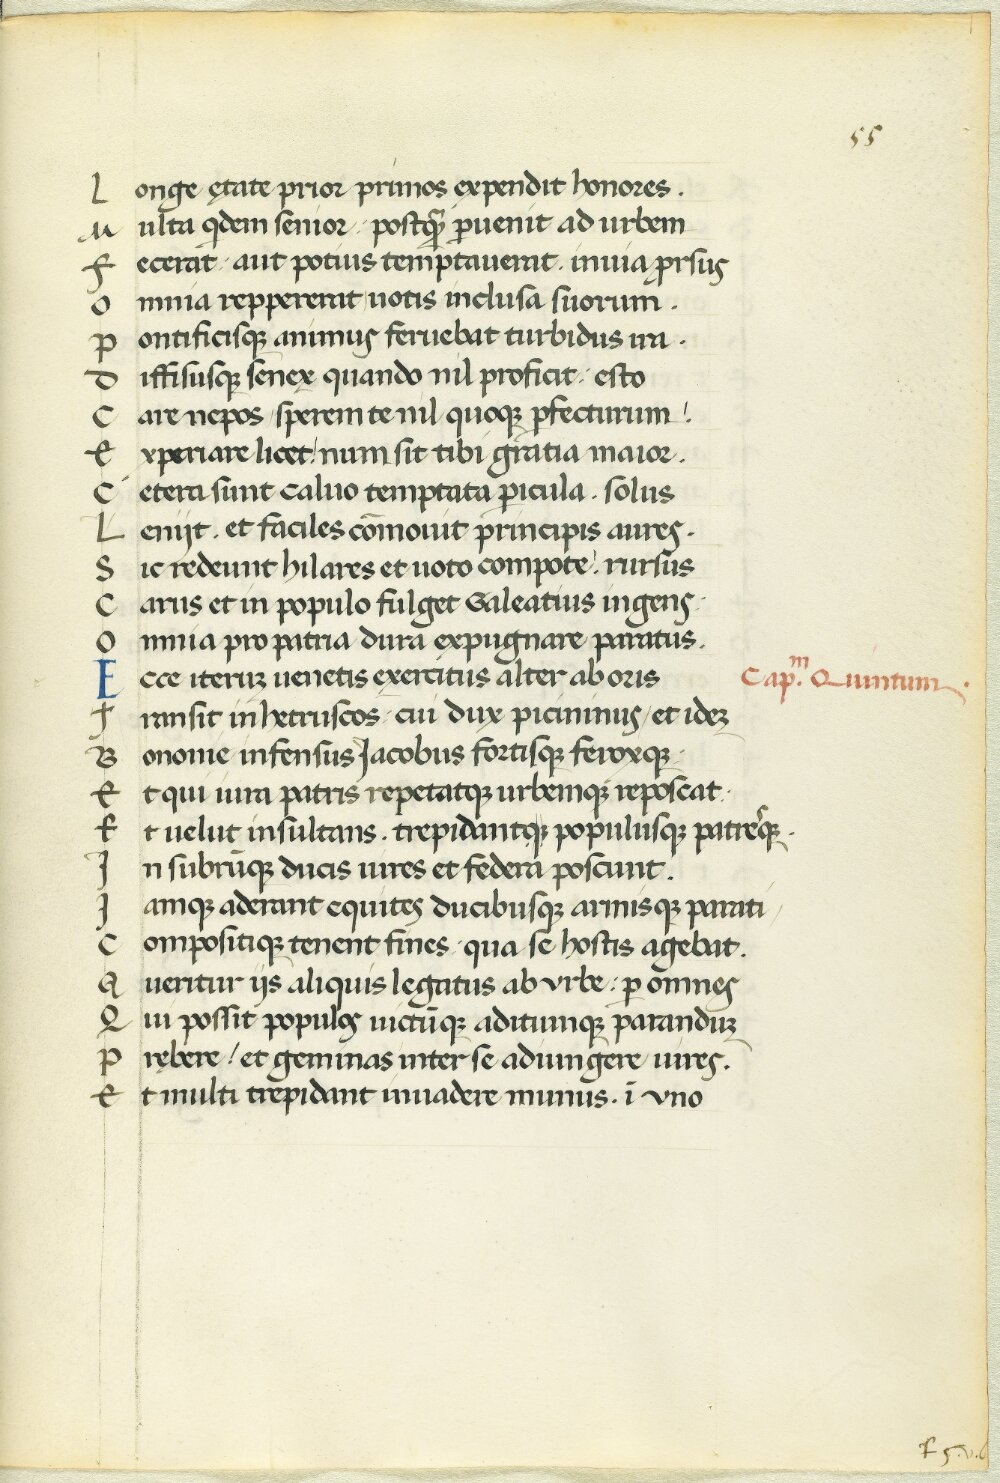 55
Longe ętate prior primos expendit honores .
Multa qdem senior . postq̃ ꝑuenit ad urbem
Fecerat . aut potius temptauerat . inuia ꝓrsus
Omnia reppererat uotis inclusa suorum .
Pontificisqꝫ animus feruebat turbidus ira .
Diffisusqꝫ senex quando nil proficit . esto
Care nepos / sperem te nil quoqꝫ ꝓfecturum !
Experiare licet / num sit tibi gratia maior .
Cetera sunt caluo temptata ꝑicula . solus
Leniit . et faciles cõmouit principis aures .
Sic redeunt hilares et uoto compote . rursus
Carus et in populo fulget Galeatius ingens
Omnia pro patria dura expugnare paratus .
Ecce iteruꝫ uenetis exercitus alter ab oris
Cap.m Quintum .
Transit in hetruscos . cui dux picininus / et ideꝫ
Bononie infensus Jacobus fortisqꝫ feroxqꝫ
Et qui iura patris repetatqꝫ urbemqꝫ reposcat .
Et uelut insultans . trepidantqꝫ populusqꝫ patresqꝫ .
In subrũqꝫ ducis uires et federa poscunt .
Jamqꝫ aderant equites ducibusqꝫ armisqꝫ parati
Compositiqꝫ tenent fines . qua se hostis agebat .
Queritur iis aliquis legatus ab vrbe . ꝑ omnes
Qui possit populos uictũqꝫ aditumqꝫ paranduꝫ
Prębere / et geminas inter se adiungere uires .
Et multi trepidant inuadere munus . ĩ vno